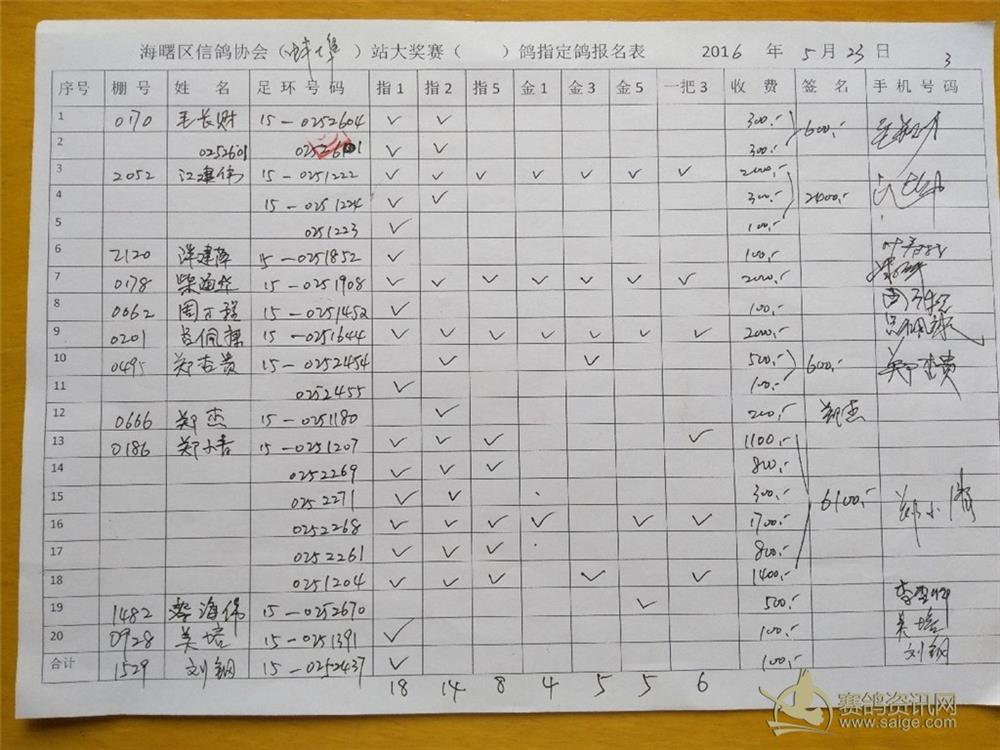 海曙区信鸽协会（ ）站大奖赛（ ）鸽指定鸽报名表 2016 年 5 月 23 日 3
序号 棚号 姓 名 足环号码 指1 指2 指5 金1 金3 金5 一把3 收 费 签 名 手机号码
1 0170 毛长财 15-0252604 ✓ ✓ 300,-
2 0252601 ✓ ✓ 300,- 600,-
3 2052 江建伟 15-0251222 ✓ ✓ ✓ ✓ ✓ ✓ ✓ 2000,-
4 15-0251224 ✓ ✓ 300,-
5 0251223 ✓ 100,-
6 2120 15-0251852 ✓ 100,-
7 0178 柴 华 15-0251908 ✓ ✓ ✓ ✓ ✓ ✓ ✓ 2000,-
8 0062 周 程 15-0251452 ✓ 100,-
9 0201 15-0251644 ✓ ✓ ✓ ✓ ✓ ✓ ✓ 2000,-
10 0495 郑 贵 15-0252454 ✓ ✓ 500,- 600,-
11 0252455 ✓ 100,-
12 0666 郑杰 15-0251180 ✓ 200,- 郑杰
13 0186 郑小 15-0251207 ✓ ✓ ✓ ✓ 1100,-
14 0252269 ✓ ✓ ✓ 800,-
15 0252271 ✓ ✓ 300,- 6100,- 郑小
16 0252268 ✓ ✓ ✓ ✓ ✓ ✓ 1700,-
17 0252261 ✓ ✓ ✓ 800,-
18 0251204 ✓ ✓ ✓ ✓ ✓ 1400,-
19 1482 海伟 15-0252670 ✓ 500,-
20 0928 吴培 15-0251391 ✓ 100,- 吴培
合计 1529 刘钢 15-0252437 ✓ 100,- 刘钢
18 14 8 4 5 5 6
赛鸽资讯网
www.saige.com